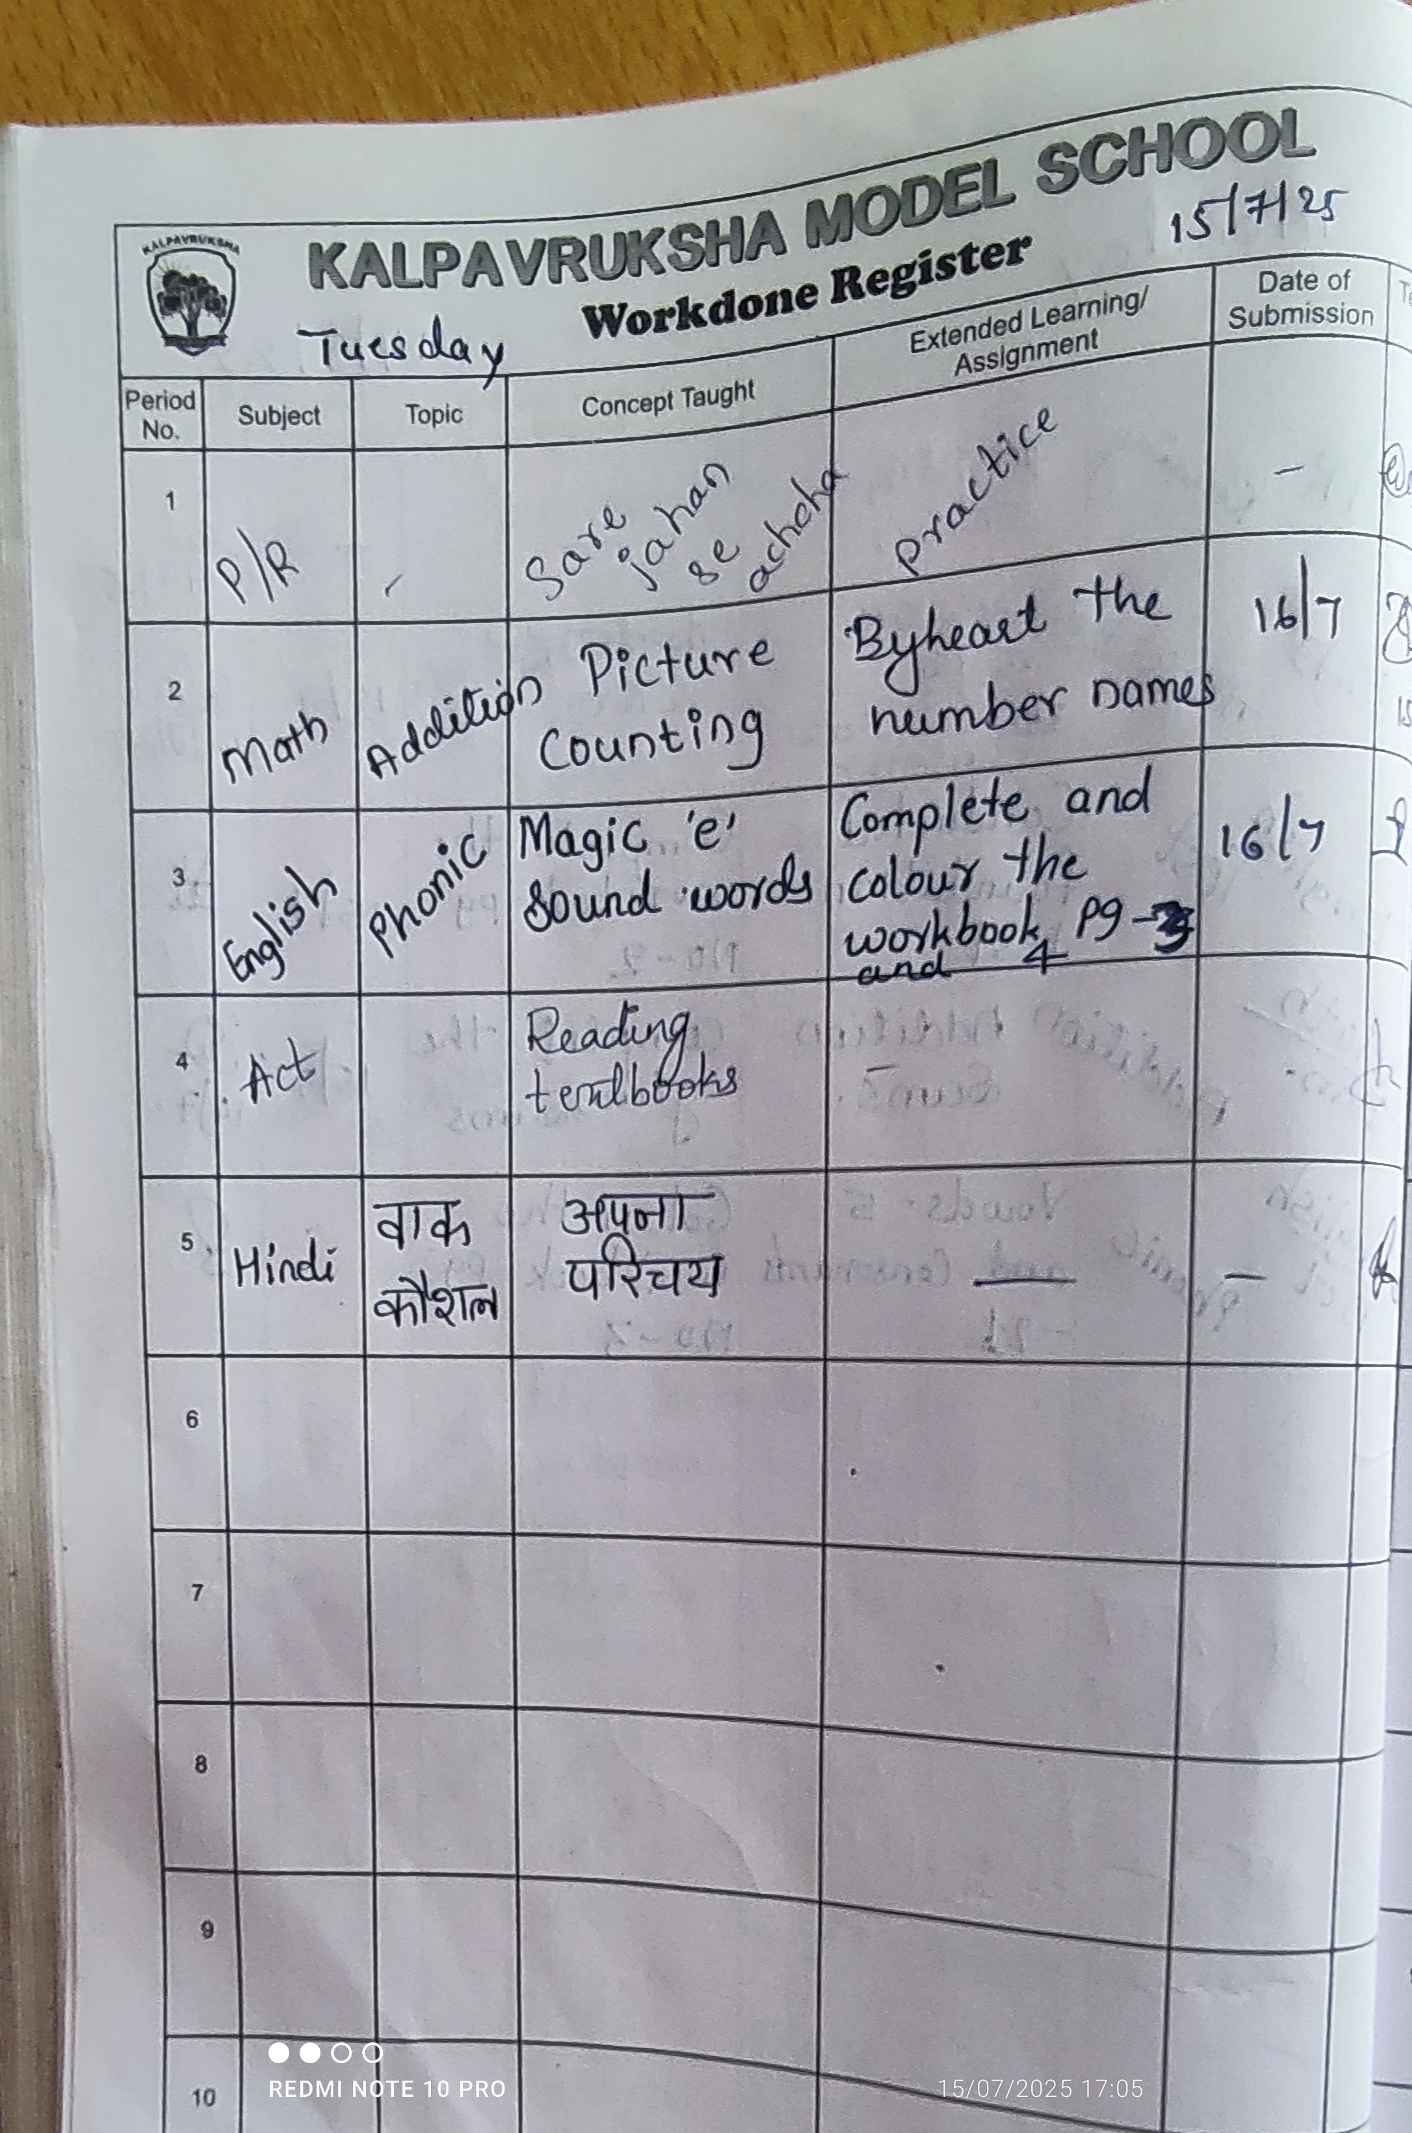 KALPAVRUKSHA
KALPAVRUKSHA MODEL SCHOOL
15/7/25
Workdone Register
Tuesday
Period No.
Subject
Topic
Concept Taught
Extended Learning/
Assignment
Date of
Submission
1
P/R
-
Sare
jahan
se
achcha
practice
-
2
Math
Addition
Picture
Counting
Byheart the
number names
16/7
3
English
Phonic
Magic 'e'
Sound words
Complete and
colour the
workbook pg-3
and 4
16/7
4
Act
Reading
textbooks
-
5
Hindi
वाक
कौशल
अपना
परिचय
—
-
6
7
8
9
10
REDMI NOTE 10 PRO
15/07/2025 17:05